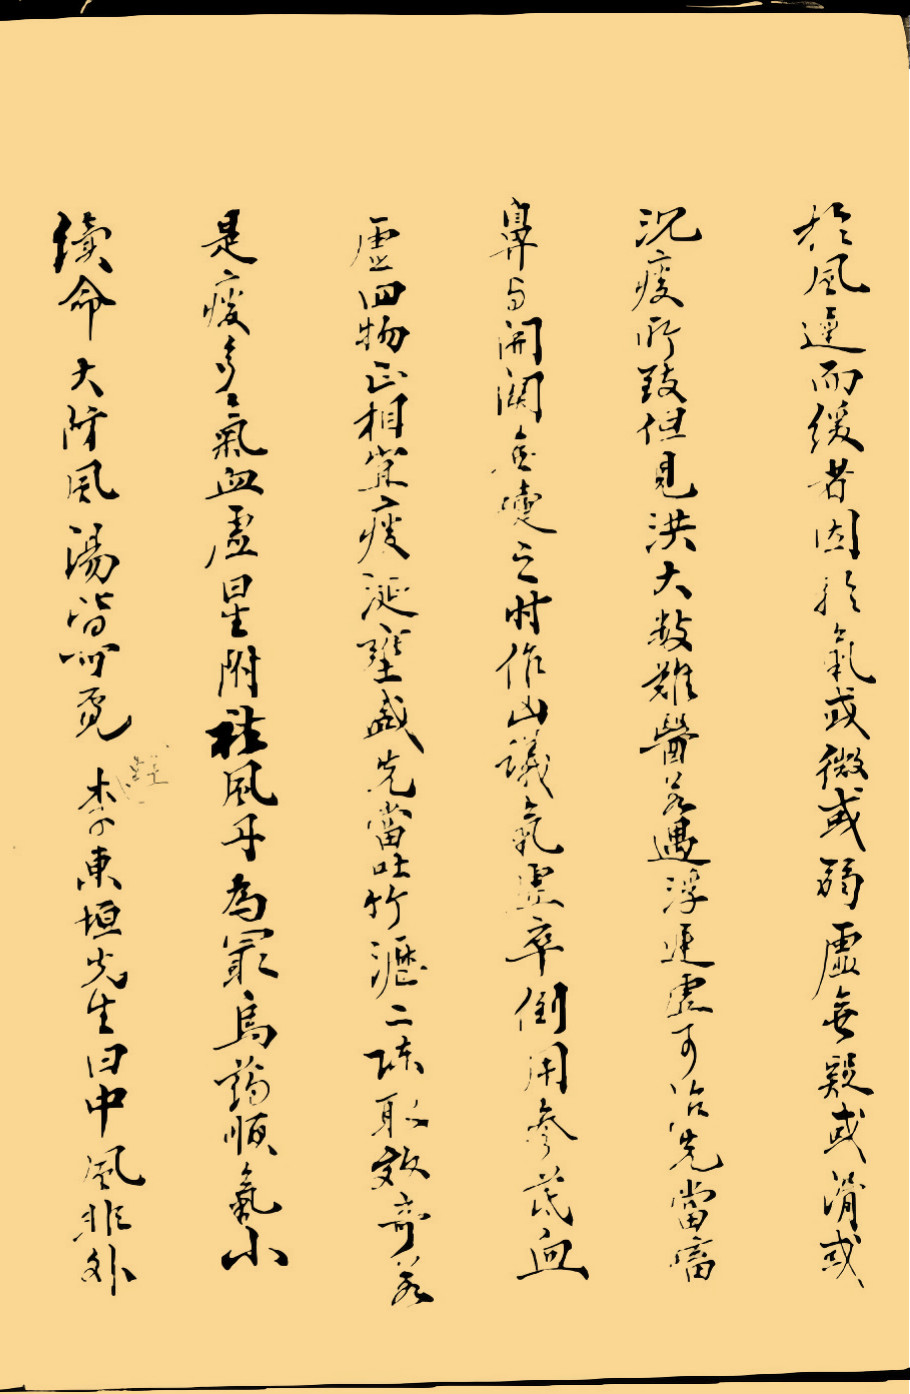 於風遲而緩者因於氣或微或弱虛無疑或滑或
沉痰所致但見洪大数難醫若遇浮遲虛可治先當㗜
鼻与開關㑹嚏之时作山議氣虛卒倒用參茋血
虛四物正相宜痰涎壅盛先當吐竹瀝二陳取效奇若
是痰多氣血虛星附祛風丹為最烏药順氣小
續命大防風湯皆可覓 李東垣先生曰中風非外